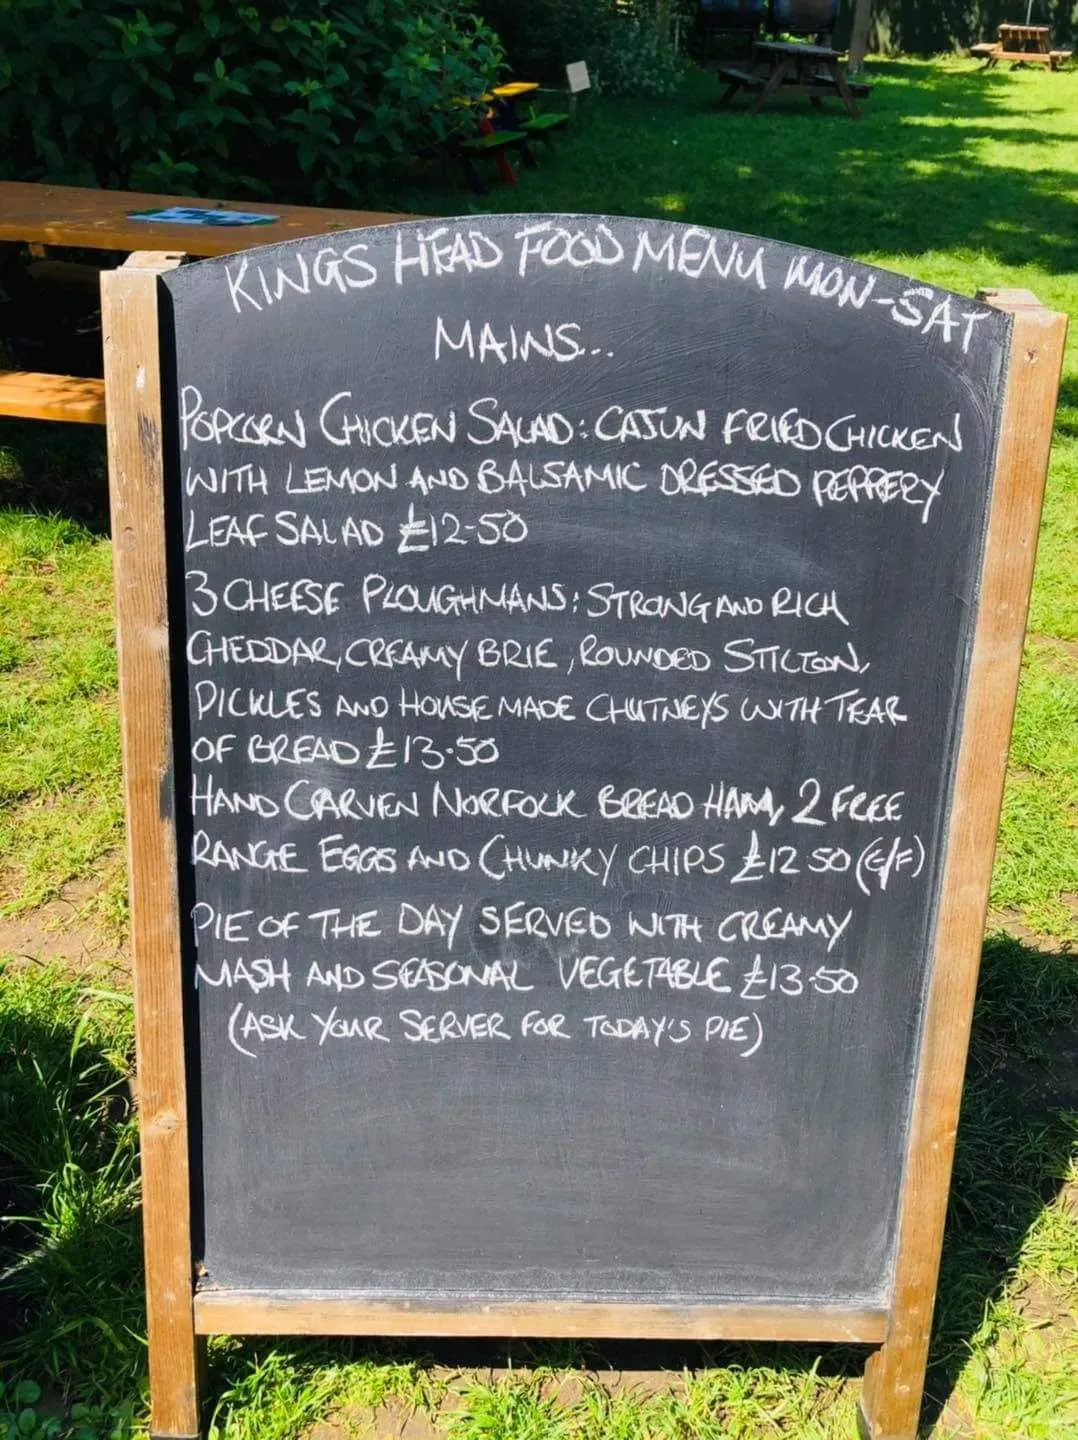 KINGS HEAD FOOD MENU MON-SAT
MAINS...
POPCORN CHICKEN SALAD: CAJUN FRIED CHICKEN
WITH LEMON AND BALSAMIC DRESSED PEPPERY
LEAF SALAD £12-50
3 CHEESE PLOUGHMANS: STRONG AND RICH
CHEDDAR, CREAMY BRIE, ROUNDED STILTON,
PICKLES AND HOUSE MADE CHUTNEYS WITH TEAR
OF BREAD £13.50
HAND CARVEN NORFOLK BREAD HAM, 2 FREE
RANGE EGGS AND CHUNKY CHIPS £12 50 (G/F)
PIE OF THE DAY SERVED WITH CREAMY
MASH AND SEASONAL VEGETABLE £13.50
(ASK YOUR SERVER FOR TODAY'S PIE)